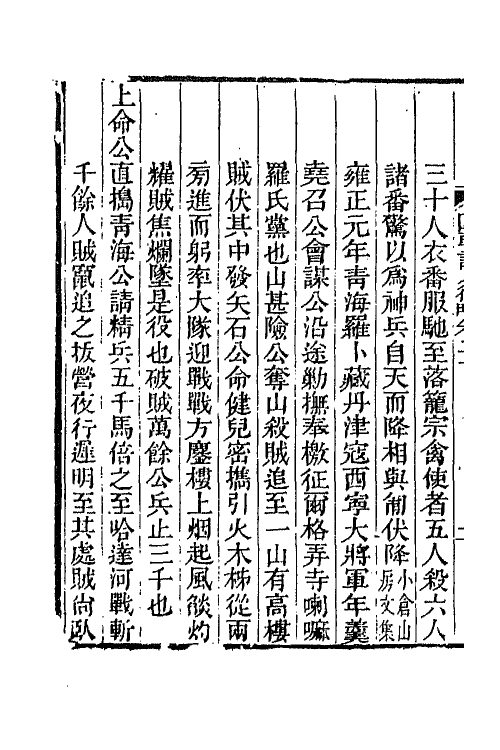 三十人衣番服馳至落籠宗禽使者五人殺六人
諸番驚以爲神兵自天而降相與匍伏降小倉山房文集
雍正元年青海羅卜藏丹津寇西寧大將軍年羹
堯召公會謀公沿途勦撫奉檄征爾格弄寺喇嘛
羅氏黨也山甚險公奪山殺賊追至一山有高樓
賊伏其中發矢石公命健兒密擕引火木柹從兩
旁進而躬率大隊迎戰戰方鏖樓上烟起風燄灼
爚賊焦爛墜是役也破賊萬餘公兵止三千也
上命公直搗青海公請精兵五千馬倍之至哈達河戰斬
千餘人賊竄追之拔營夜行遲明至其處賊尙臥